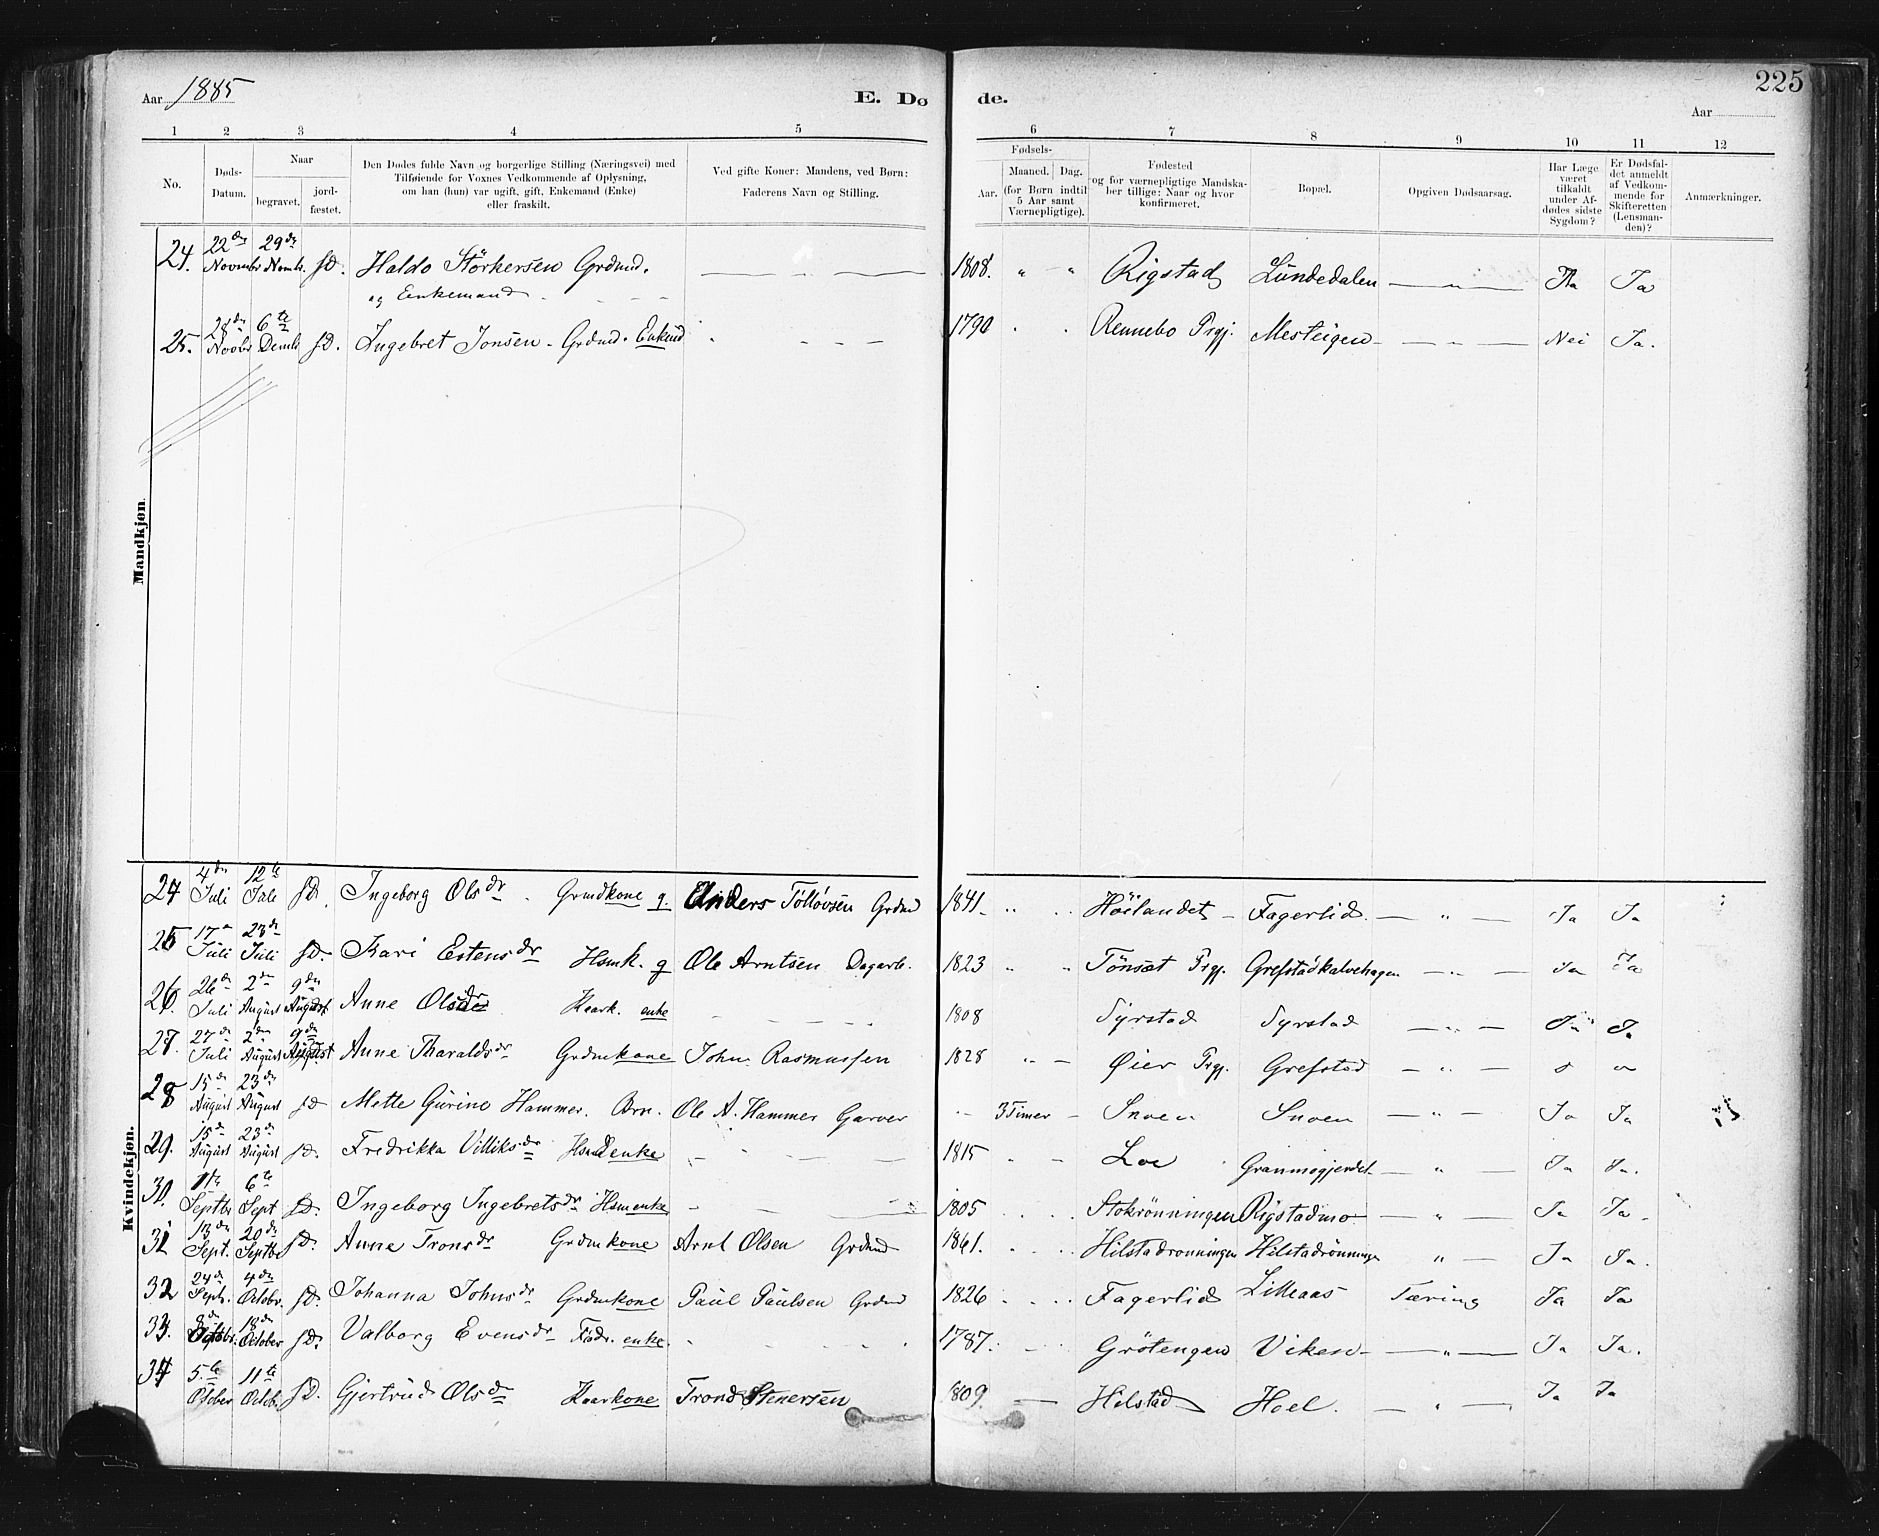 Aar 1885
E. Dø
de.
225
Aar
1 2 3 4 5 6 7 8 9 10 11 12
No.
Døds-
Datum.
Naar
begravet.
jord-
fæstet.
Den Dødes fulde Navn og borgerlige Stilling (Næringsvei) med
Tilføiende for Voxnes Vedkommende af Oplysning,
om han (hun) var ugift, gift, Enkemand (Enke)
eller fraskilt.
Ved gifte Koner: Mandens, ved Børn:
Faderens Navn og Stilling.
Fødsels-
Aar.
Maaned. Dag.
(for Børn indtil
5 Aar samt
Værnepligtige).
Fødested
og for værnepligtige Mandska-
ber tillige: Naar og hvor
konfirmeret.
Bopæl.
Opgiven Dødsaarsag.
Har Læge
været
tilkaldt
under Af-
dødes sidste
Sygdom?
Er Dødsfal-
det anmeldt
af Vedkom-
mende for
Skifteretten
(Lensman-
den)?
Anmærkninger.
Mandkjøn.
24. 22de Novembr 29de Novbr. JD. Haldo Störkersen Grdmd. 1808. " " Rigstad Lundedalen — " — Ja Ja
og Enkemand
25. 28de Novbr 6te Decmbr JD. Ingebret Jonsen - Grdmd. Enkmd 1790 Rennebo Prgj. Mesteigen — " — Nei Ja.
Kvindekjøn.
24 4de Juli 12te Juli JD. Ingeborg Olsdr. Grmdkone g. Anders Tölløvsen Grdmd 1841. Höilandet Fagerlid — " — Ja Ja
25 17de Juli 23de Juli JD. Kari Estensdr Hsmk. g Ole Arntsen Dagarb. 1823 " " Tönsæt Prgj. Grefstadkalvehagen — " — Ja Ja
26. 26de Juli 2den August 9de August Anne Olsdr Kaark. enke 1808 Syrstad Syrstad — " — Ja Ja
27. 27de Juli 2den August 9de August Anne Tharaldsdr Grdmkone John Rasmussen 1828 " — Øier Prgj. Grefstad — " —
28 15de August 23de August JD Mette Gurine Hammer. Brn. Ole A. Hammer Garver 3 Timer — Snoen Snoen — " — Ja Ja
29. 15de August 23de August JD. Fredrikka Villiksdr Hsmdenke 1815 Loe Granmogjerdet — " — Ja Ja.
30. 1ste Septbr 6te Sept JD. Ingeborg Ingebretsdr Hsmenke 1805 Stokrönningen Rigstadmo — " — Ja Ja
31 13de Sept. 20de Septbr JD. Anne Tronsdr Grdmkone Arnt Olsen Grdmd 1861. Hilstadronningen Hilstadrönningen " — Ja Ja.
32 24de Septr. 4de Octobr. JD. Johanna Johnsdr Grdmkone Paul Paulsen Grdmd 1826 Fagerlid Lilleaas Tæring Ja Ja
33. 8de Octobr. 18de October JD. Valborg Evensdr Födr. enke. 1787. Grötengen Viken — " — Ja Ja.
34 5te October 11te Octob. JD. Gjertrud Olsdr Kaarkone Trond Stenersen 1809. — Hilstad Hoel. — " — Ja Ja